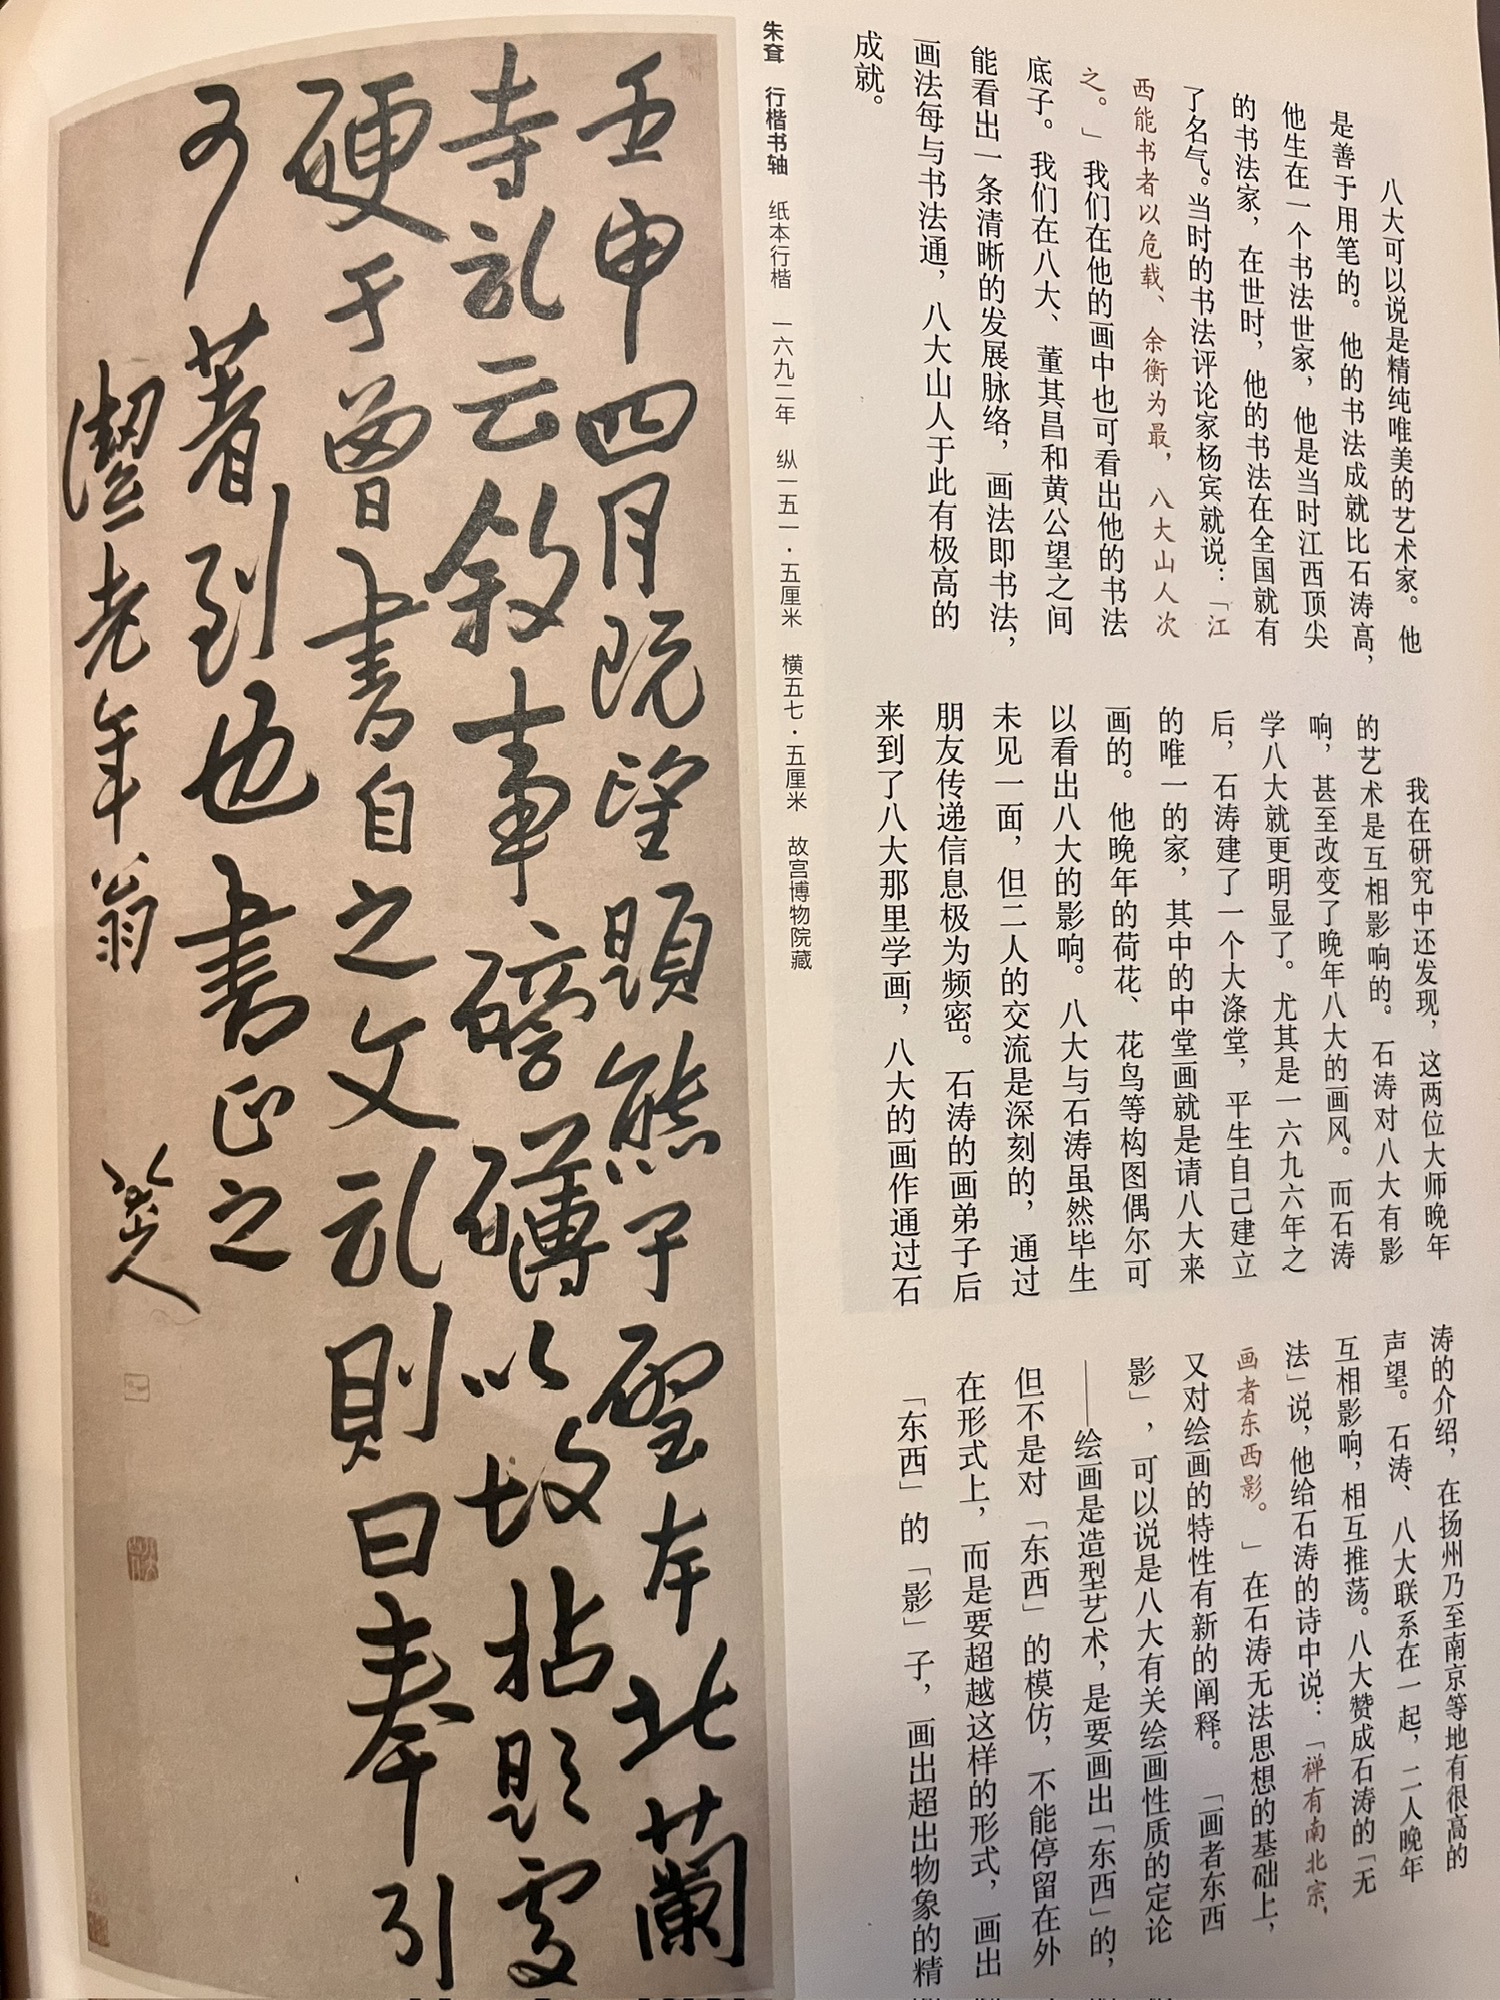 八大可以说是精纯唯美的艺术家。他
是善于用笔的。他的书法成就比石涛高，
他生在一个书法世家，他是当时江西顶尖
的书法家，在世时，他的书法在全国就有
了名气。当时的书法评论家杨宾就说：「江
西能书者以危载、余衡为最，八大山人次
之。」我们在他的画中也可看出他的书法
底子。我们在八大、董其昌和黄公望之间
能看出一条清晰的发展脉络，画法即书法，
画法每与书法通，八大山人于此有极高的
成就。
我在研究中还发现，这两位大师晚年
的艺术是互相影响的。石涛对八大有影
响，甚至改变了晚年八大的画风。而石涛
学八大就更明显了。尤其是一六九六年之
后，石涛建了一个大涤堂，平生自己建立
的唯一的家，其中的中堂画就是请八大来
画的。他晚年的荷花、花鸟等构图偶尔可
以看出八大的影响。八大与石涛虽然毕生
未见一面，但二人的交流是深刻的，通过
朋友传递信息极为频密。石涛的画弟子后
来到了八大那里学画，八大的画作通过石
涛的介绍，在扬州乃至南京等地有很高的
声望。石涛、八大联系在一起，二人晚年
互相影响，相互推荡。八大赞成石涛的「无
法」说，他给石涛的诗中说：「禅有南北宗，
画者东西影。」在石涛无法思想的基础上，
又对绘画的特性有新的阐释。「画者东西
影」，可以说是八大有关绘画性质的定论
——绘画是造型艺术，是要画出「东西」的，
但不是对「东西」的模仿，不能停留在外
在形式上，而是要超越这样的形式，画出
「东西」的「影」子，画出超出物象的精
朱耷 行楷书轴 纸本行楷 一六九二年 纵一五一·五厘米 横五七·五厘米 故宫博物院藏
壬申四月既望题熊子 本北蘭
寺記云敘事磅礴以故拈题處
硬于曾書自之文記則曰奉引
可著到也書正之
老年翁 八大山人